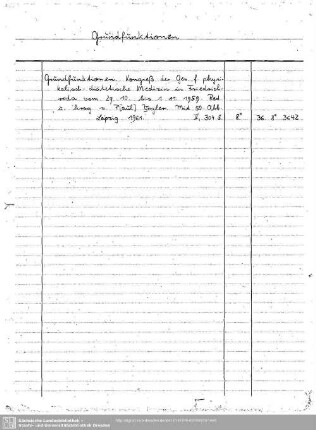 Grundfunktionen
Grundfunktionen. Kongreß der Ges. f. physi-
kalisch-diätetische Medizin in Friedrich-
roda vom 29. 10. bis 1. 11. 1959. Red.
u. hrsg. v. Mit 80 Abb.
Leipzig 1961. X, 304 S. 8° 36. 8° 3042
Sächsische Landesbibliothek -
Staats- und Universitätsbibliothek Dresden